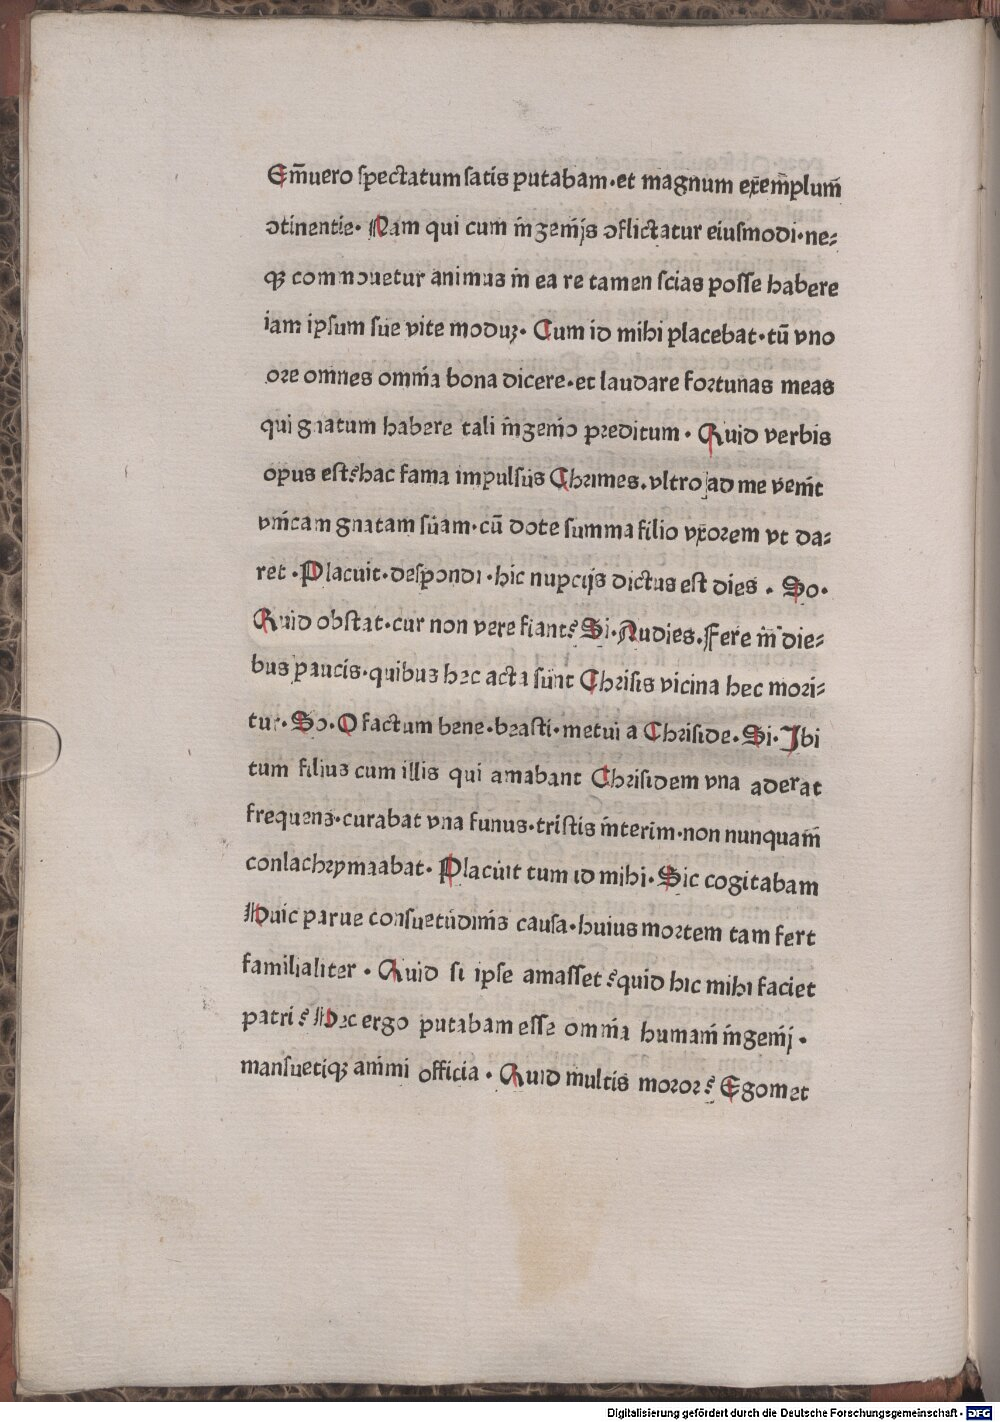 Em̄uero spectatum satis putabam·et magnum exem̄plum̄
ↄtinentie· Nam qui cum īngenijs ↄflictatur eiusmodi·ne⸗
qꝫ commouetur animus in ea re tamen scias posse habere
iam ipsum sue vite moduꝫ· Cum id mihi placebat·tū vno
ore omnes omnia bona dicere·et laudare fortunas meas
qui gnatum habere tali ingenio preditum· Quid verbis
opus est?hac fama impulsus Chremes.vltro ad me venit
vnicam gnatam suam·cū dote summa filio vxorem vt da⸗
ret·Placuit·despondi·hic nupcijs dictus est dies· So·
Quid obstat·cur non vere fiant? Si·Audies.Fere in die⸗
bus paucis·quibus hec acta sunt Chrisis vicina hec mori⸗
tur·So·O factum bene·beasti·metui a Chriside·Si·Ibi
tum filius cum illis qui amabant Chrisidem vna aderat
frequens·curabat vna funus·tristis interim·non nunquam̄
conlachrymaabat· Placuit tum id mihi·Sic cogitabam
Huic parue consuetudinis causa·huius mortem tam fert
familialiter· Quid si ipse amasset?quid hic mihi faciet
patri? Hec ergo putabam esse omnia humani ingenij·
mansuetiqꝫ animi officia· Quid multis moror? Egomet
Digitalisierung gefördert durch die Deutsche Forschungsgemeinschaft - DFG